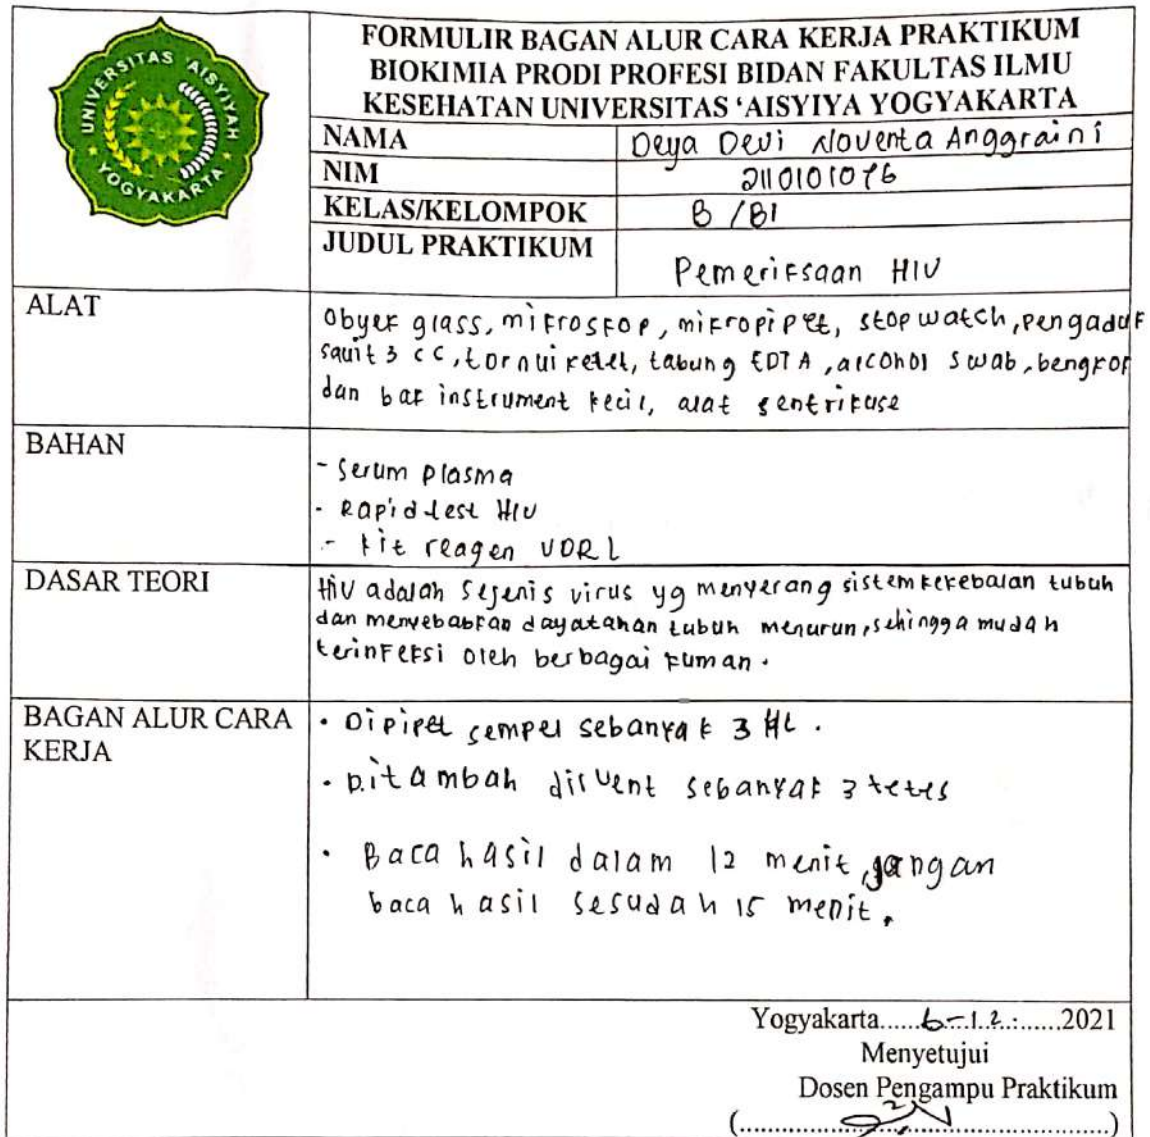 UNIVERSITAS 'AISYIYAH
YOGYAKARTA
FORMULIR BAGAN ALUR CARA KERJA PRAKTIKUM
BIOKIMIA PRODI PROFESI BIDAN FAKULTAS ILMU
KESEHATAN UNIVERSITAS ‘AISYIYA YOGYAKARTA
NAMA Deya Devi Noventa Anggraini
NIM 2110101076
KELAS/KELOMPOK B / B1
JUDUL PRAKTIKUM Pemeriksaan HIV
ALAT
Obyek glass, mikroskop, mikropipet, stopwatch, pengaduk
squit 3 cc, tornuiketet, tabung EDTA, alcohol swab, bengkok
dan bak instrument kecil, alat sentrikuse
BAHAN
- Serum plasma
- Rapid test HIV
- kit reagen VDRL
DASAR TEORI
HIV adalah sejenis virus yg menyerang sistem kekebalan tubuh
dan menyebabkan dayatahan tubuh menurun, sehingga mudah
terinfeksi oleh berbagai kuman.
BAGAN ALUR CARA
KERJA
• Dipipet sempel sebanyak 3 ML.
• Ditambah diluent sebanyak 3 tetes
• Baca hasil dalam 12 menit, jangan
baca hasil sesudah 15 menit.
Yogyakarta......6-12.:......2021
Menyetujui
Dosen Pengampu Praktikum
(..................................................)